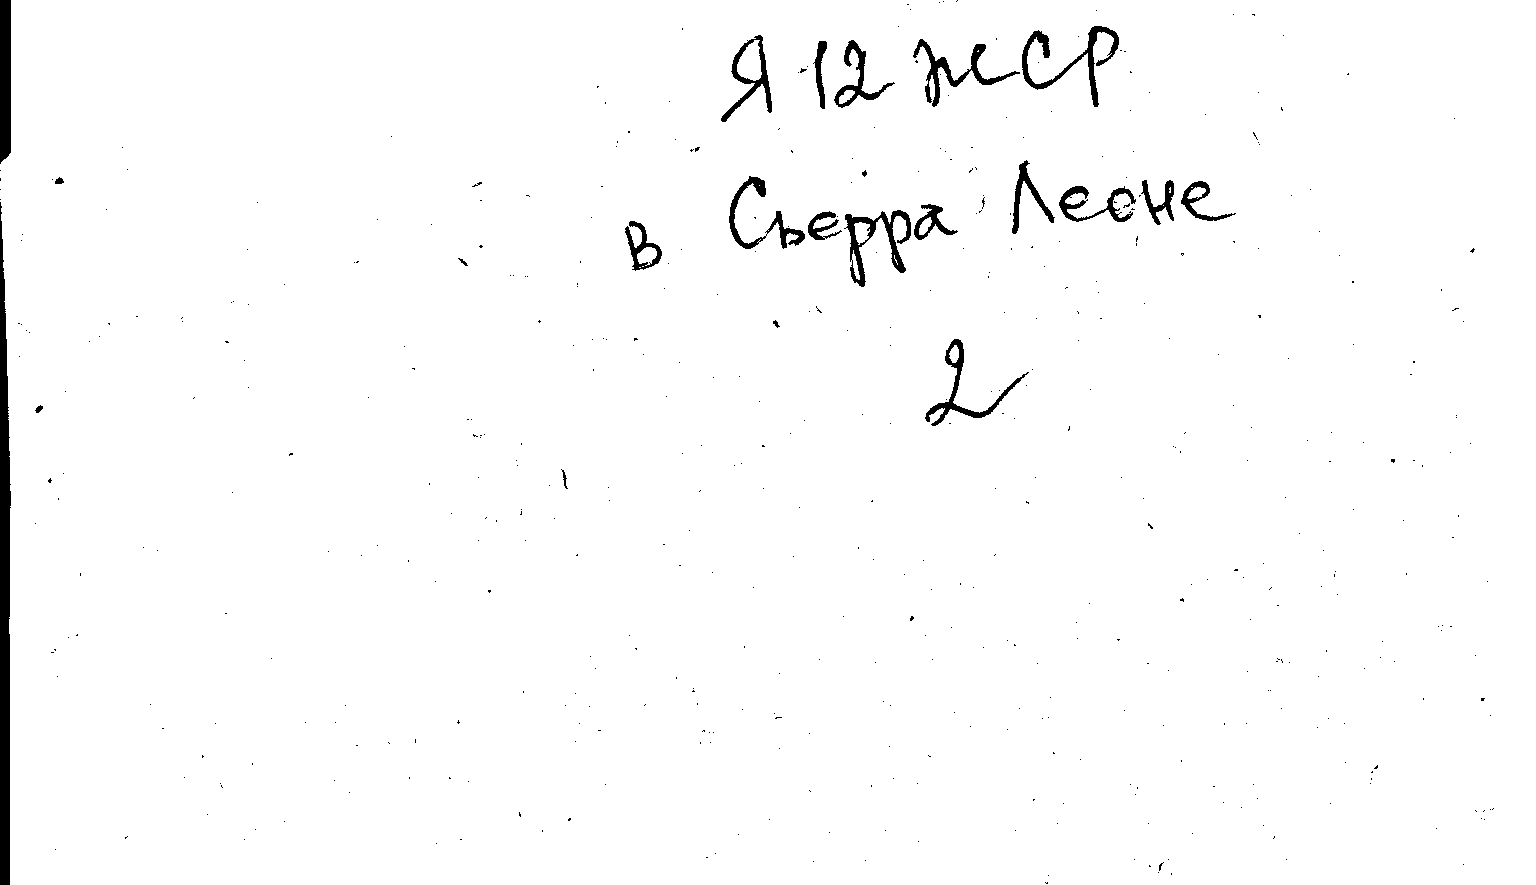 Я 12 жср
в Сьерра Леоне
2